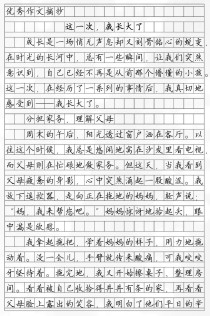 优秀作文摘抄
这一次，我长大了
成长是一场悄无声息却又刻骨铭心的蜕变，
在时光的长河中，总有一些瞬间，让我们突然
意识到，自己已经不再是从前那个懵懂的小孩。
这一次，在经历了一系列的事情后，我真切地
感受到——我长大了。
分担家务，理解父母
周末的午后，阳光透过窗户洒在客厅。以
往这个时候，我总是悠闲地窝在沙发里看电视，
而父母则在忙碌地做家务。但这天，当我看到
父母疲惫的身影，心中突然涌起一股酸涩。我
放下遥控器，走向正在拖地的妈妈，轻声说：
“妈，我来帮您吧。”妈妈惊讶地抬起头，眼
中满是欣慰。
我拿起拖把，学着妈妈的样子，用力地拖
动着。没一会儿，手臂就传来酸痛，可我咬咬
牙坚持着。拖完地，我又开始擦桌子、整理房
间。看着被自己收拾得井井有条的家，再看看
父母脸上露出的笑容，我明白了他们平日的辛